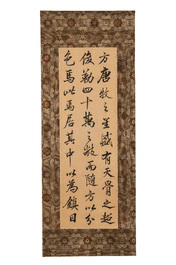 方唐牧之至盛有天骨之超
俊勒四十萬之數而隨方以分
色焉此馬居其中以為鎮目